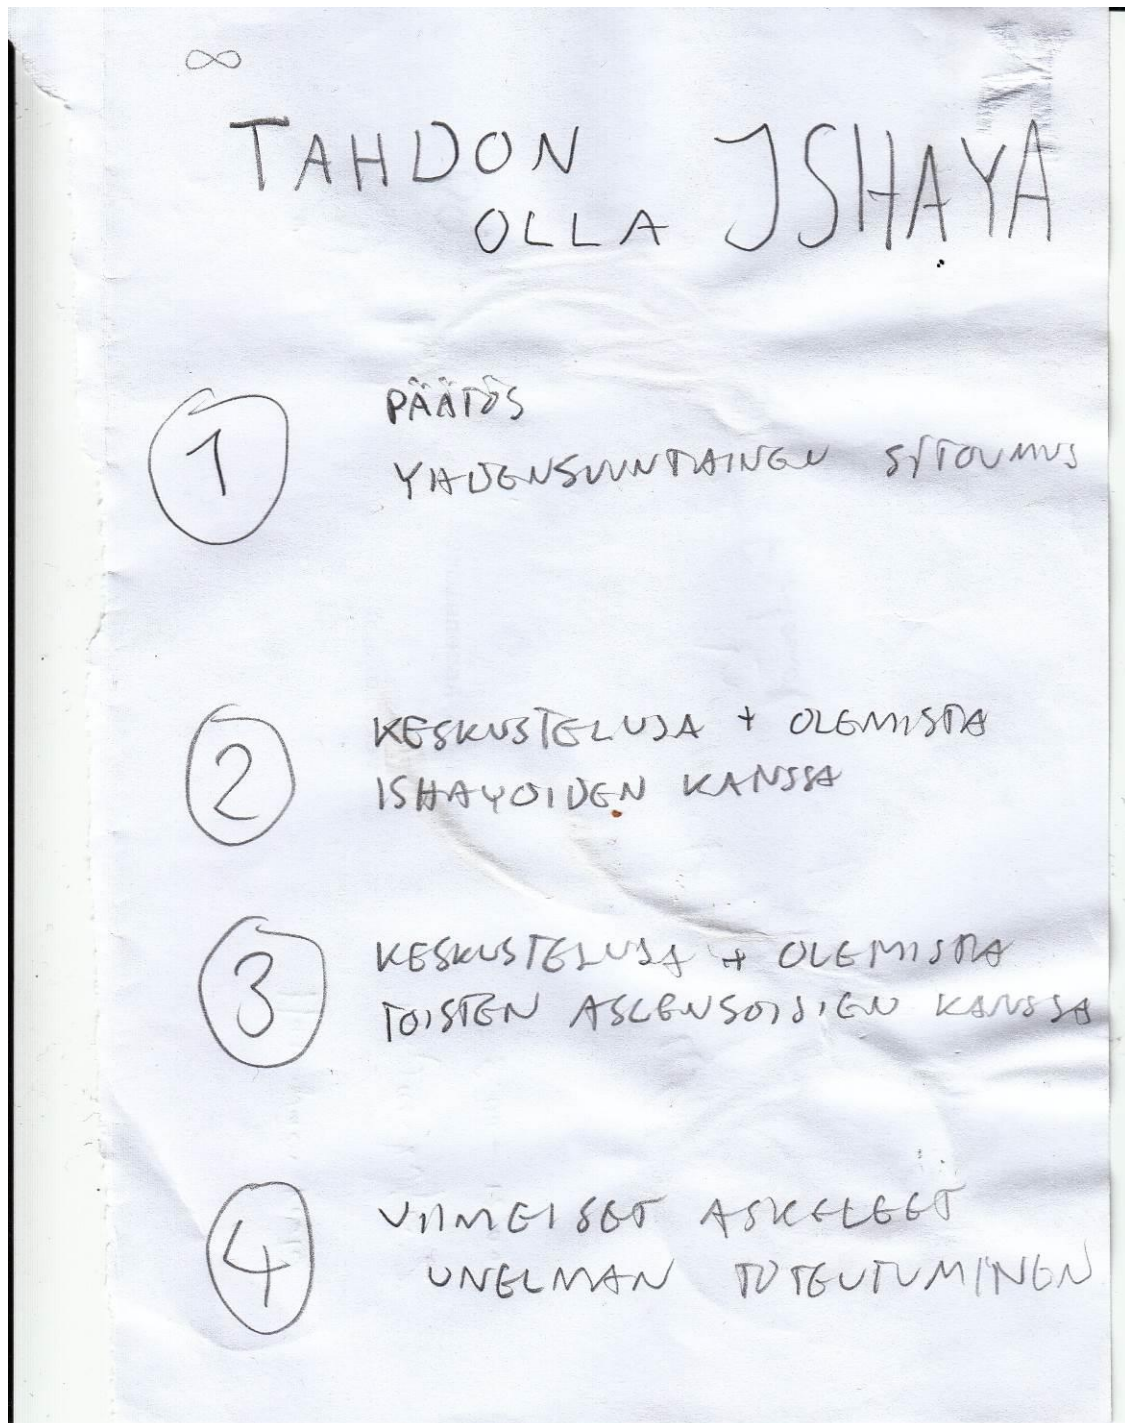 ∞
TAHDON
OLLA ISHAYA
1 PÄÄTÖS
YHDENSUUNTAINEN SITOUMUS
2 KESKUSTELUJA + OLEMISTA
ISHAYOIDEN KANSSA
3 KESKUSTELUJA + OLEMISTA
TOISTEN ASCENSOIJIEN KANSSA
4 VIIMEISET ASKELEET
UNELMAN TOTEUTUMINEN